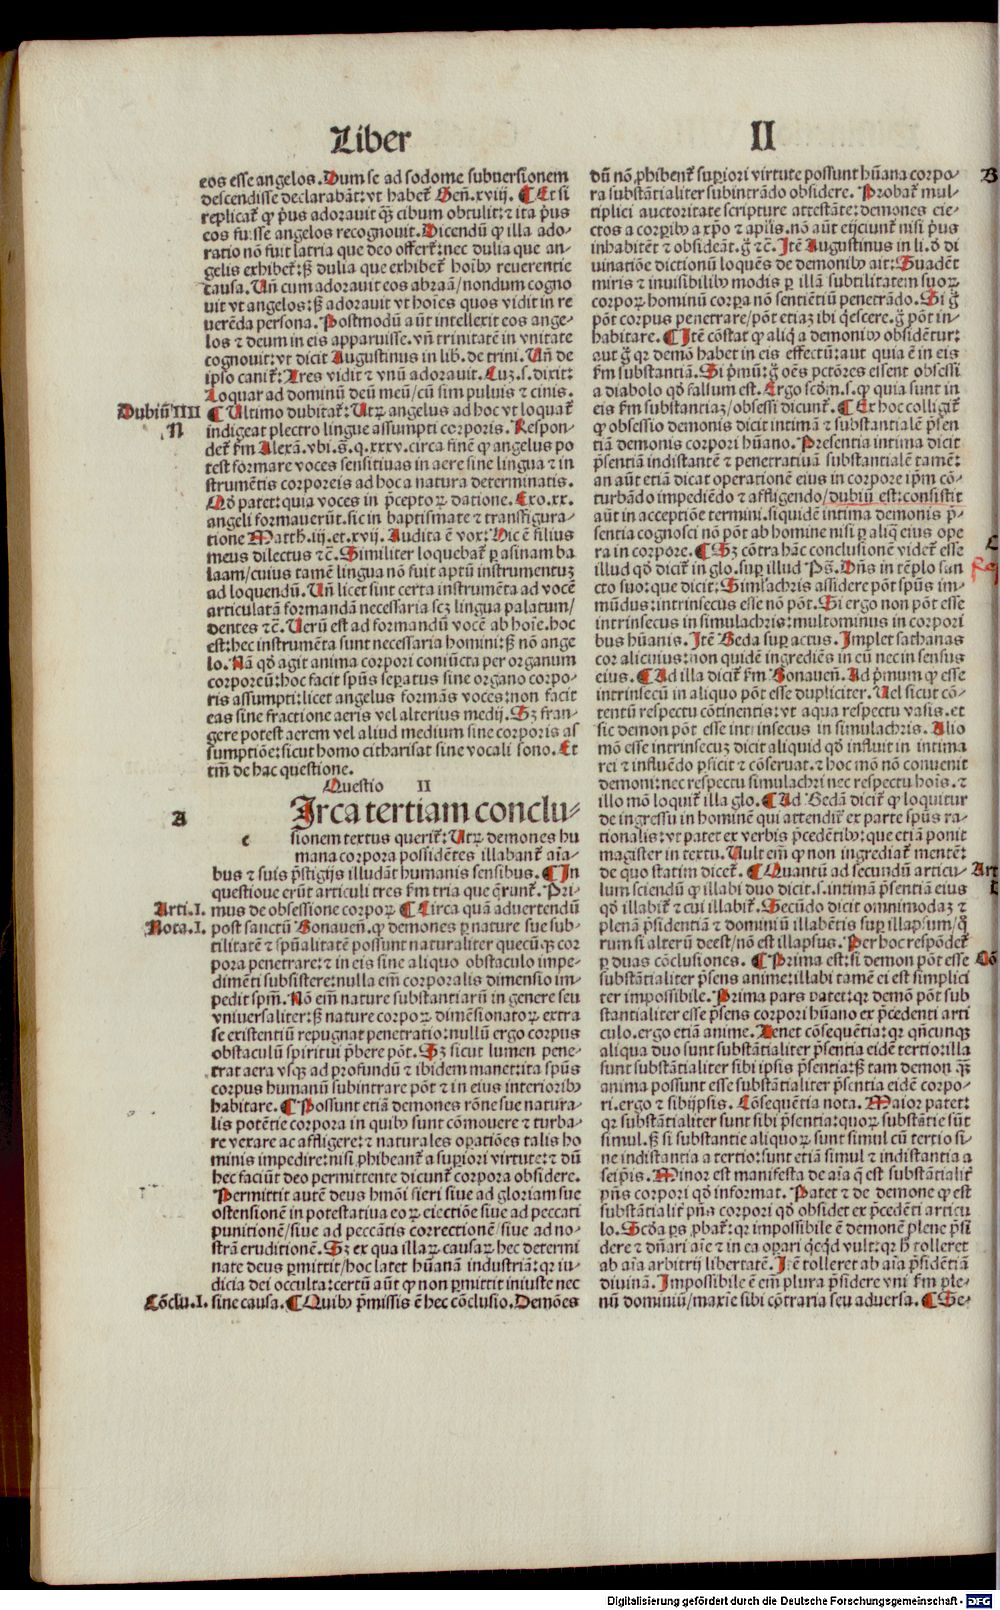 Liber II
eos esse angelos. Dum se ad sodome subuersionem
descendisse declarabāt: vt habet᷑ Geñ. xviij. ¶ Et si
replicat᷑ ꝙ p̄us adorauit q̄ꝫ cibum obtulit: ⁊ ita p̄us
eos fuisse angelos recognouit. Dicendū ꝙ illa ado⸗
ratio nō fuit latria que deo offert᷑: nec dulia que an⸗
gelis exhibet᷑: sꝫ dulia que exhibet᷑ hoībꝰ reuerentie
causa. Uñ cum adorauit eos abraā/ nondum cogno
uit vt angelos: sꝫ adorauit vt hoīes quos vidit in re
uerēda persona. Postmodū aūt intellexit eos ange⸗
los ⁊ deum in eis apparuisse. vñ trinitatē in vnitate
cognouit: vt dicit Augustinus in lib. de trini. Uñ de
ipso canit᷑: Tres vidit ⁊ vnū adorauit. Luꝫ. s. dixit:
Loquar ad dominū deū meū/ cū sim puluis ⁊ cinis.
Dubiū IIII
N
¶ Ultimo dubitat᷑: Utꝝ angelus ad hoc vt loquat᷑
indigeat plectro lingue assumpti corporis. Respon⸗
det᷑ ẜm Alexā. vbi. s̄. q. xxxv. circa finē ꝙ angelus po
test formare voces sensitiuas in aere sine lingua ⁊ in
strumētis corporeis ad hoc a natura determinatis.
Qđ patet: quia voces in p̄ceptoꝝ datione. Exo. xx.
angeli formauerūt. sic in baptismate ⁊ transfigura⸗
tione Matth. iij. et. xvij. Audita ē vox: Hic ē filius
meus dilectus ⁊c̄. Similiter loquebat᷑ ꝑ asinam ba
laam/ cuius tamē lingua nō fuit aptū instrumentuꝫ
ad loquendū. Uñ licet sint certa instrumēta ad vocē
articulatā formandā necessaria scꝫ lingua palatum/
dentes ⁊c̄. Uerū est ad formandū vocē ab hoīe. hoc
est: hec instrumēta sunt necessaria homini: sꝫ nō ange
lo. Nā qđ agit anima corpori coniūcta per organum
corporeū: hoc facit spūs seꝑatus sine organo corpo⸗
ris assumpti: licet angelus formās voces: non facit
eas sine fractione aeris vel alterius medij. Sꝫ fran⸗
gere potest aerem vel aliud medium sine corporis as
sumptiōe: sicut homo citharisat sine vocali sono. Et
tm̄ de hac questione.
Questio II
A
c
Irca tertiam conclu⸗
sionem textus querit᷑: Utꝝ demones hu
mana corpora possidētes illabant᷑ aīa⸗
bus ⁊ suis p̄stigijs illudāt humanis sensibus. ¶ In
questione erūt articuli tres ẜm tria que q̄runt᷑. Pri⸗
Arti. I.
mus de obsessione corpoꝝ ¶ Circa quā aduertendū
Nota. I.
post sanctū Bonaueñ. ꝙ demones ꝑ nature sue sub⸗
tilitatē ⁊ spūalitatē possunt naturaliter quecūqꝫ cor
pora penetrare: ⁊ in eis sine aliquo obstaculo impe⸗
dimēti subsistere: nulla em̄ corporalis dimensio im⸗
pedit spm̄. Nō em̄ nature substantiarū in genere seu
vniuersaliter: sꝫ nature corpoꝝ dimēsionatoꝝ extra
se existentiū repugnat penetratio: nullū ergo corpus
obstaculū spiritui p̄bere pōt. Sꝫ sicut lumen pene⸗
trat aera vsqꝫ ad profundū ⁊ ibidem manet: ita spūs
corpus humanū subintrare pōt ⁊ in eius interioribꝰ
habitare. ¶ Possunt etiā demones rōne sue natura⸗
lis potētie corpora in quibꝰ sunt cōmouere ⁊ turba⸗
re vexare ac affligere: ⁊ naturales oꝑatiōes talis ho
minis impedire: nisi ꝓhibeant᷑ a suꝑiori virtute: ⁊ dū
hec faciūt deo permittente dicunt᷑ corpora obsidere.
Permittit autē deus hmōi fieri siue ad gloriam sue
ostensionē in potestatiua eoꝝ eiectiōe siue ad peccati
punitionē/ siue ad peccātis correctionē/ siue ad no⸗
strā eruditionē. Sꝫ ex qua illaꝝ causaꝝ hec determi
nate deus ꝑmittit/ hoc latet hūanā industriā: qꝛ iu⸗
dicia dei occulta: certū aūt ꝙ non ꝑmittit iniuste nec
Cōclu. I.
sine causa. ¶ Quibꝰ p̄missis ē hec cōclusio. Demōes
B
dū nō ꝓhibent᷑ suꝑiori virtute possunt hūana corpo⸗
ra substātialiter subintrādo obsidere. Probat᷑ mul⸗
tiplici auctoritate scripture attestāte: demones eie⸗
ctos a corꝑibꝰ a xp̄o ⁊ apl̄is. nō aūt eijciunt᷑ nisi p̄us
inhabitēt ⁊ obsideāt. g̊ ⁊c̄. Itē Augustinus in li. đ di
uinatiōe dictionū loquēs de demonibꝰ ait: Suadēt
miris ⁊ inuisibilibꝰ modis ꝑ illā subtilitatem suoꝝ
corpoꝝ hominū corꝑa nō sentiētiū penetrādo. Si g̊
pōt corpus penetrare/ pōt etiaꝫ ibi q̇escere. g̊ pōt in⸗
habitare. ¶ Itē cōstat ꝙ aliq̇ a demonibꝰ obsidētur:
aut g̊ qꝛ demō habet in eis effectū: aut quia ē in eis
ẜm substantiā. Si p̄mū: g̊ oēs pctōres essent obsessi
a diabolo qđ falsum est. Ergo scđm. s. ꝙ quia sunt in
eis ẜm substantiaꝫ/ obsessi dicunt᷑. ¶ Ex hoc colligit᷑
ꝙ obsessio demonis dicit intimā ⁊ substantialē p̄sen
tiā demonis corpori hūano. Presentia intima dicit
p̄sentiā indistantē ⁊ penetratiuā substantialē tamē:
an aūt etiā dicat operationē eius in corpore ip̄m cō⸗
turbādo impediēdo ⁊ affligendo/ dubiū est: consistit
aūt in acceptiōe termini. si quidē intima demonis p̄⸗
sentia cognosci nō pōt ab homine nisi ꝑ aliq̄ eius ope
ra in corpore. ¶ Sꝫ cōtra hāc conclusionē videt᷑ esse
illud qđ dicit᷑ in glo. suꝑ illud Ps̄. Dn̄s in tēplo san
cto suo: que dicit: Simlachris assidere pōt spūs im⸗
mūdus: intrinsecus esse nō pōt. Si ergo non pōt esse
intrinsecus in simulachris: multominus in corpori
bus hūanis. Itē Beda suꝑ actus. Implet sathanas
cor alicuius: non quidē ingrediēs in eū nec in sensus
eius. ¶ Ad illa dicit᷑ ẜm Bonaueñ. Ad p̄mum ꝙ esse
intrinsecū in aliquo pōt esse dupliciter. Uel sicut cō⸗
tentū respectu cōtinentis: vt aqua respectu vasis. et
sic demon pōt esse intrinsecus in simulachris. Alio
mō esse intrinsecuꝫ dicit aliquid qđ influit in intima
rei ⁊ influēdo ꝑficit ⁊ cōseruat. ⁊ hoc mō nō conuenit
demoni: nec respectu simulachri nec respectu hoīs. ⁊
illo mō loquit᷑ illa glo. ¶ Ad Bedā dicit᷑ ꝙ loquitur
de ingressu in hominē qui attendit᷑ ex parte spūs ra⸗
tionalis: vt patet ex verbis p̄cedētibꝰ: que etiā ponit
magister in textu. Uult em̄ ꝙ non ingrediat᷑ mentē:
de quo statim dicet᷑. ¶ Quantū ad secundū articu⸗
Art
lum sciendū ꝙ illabi duo dicit. s. intimā p̄sentiā eius
qđ illabit᷑ ⁊ cui illabit᷑. Secūdo dicit omnimodaꝫ ⁊
plenā p̄sidentiā ⁊ dominiū illabētis suꝑ illapsum/ q̊
rum si alterū deest/ nō est illapsus. Per hoc respōdet᷑
Cō
ꝑ duas cōclusiones. ¶ Prima est: si demon pōt esse
substātialiter p̄sens anime: illabi tamē ei est simplici
ter impossibile. Prima pars patet: qꝛ demō pōt sub
stantialiter esse p̄sens corpori hūano ex p̄cedenti arti
culo. ergo etiā anime. Tenet cōsequētia: qꝛ qn̄cunqꝫ
aliqua duo sunt substātialiter p̄sentia eidē tertio: illa
sunt substātialiter sibi ipsis p̄sentia: sꝫ tam demon q̄ꝫ
anima possunt esse substātialiter p̄sentia eidē corpo⸗
ri. ergo ⁊ sibijpsis. Cōsequētia nota. Maior patet:
qꝛ substātialiter sunt sibi p̄sentia: quoꝝ substātie sūt
simul. sꝫ si substantie aliquoꝝ sunt simul cū tertio si⸗
ne indistantia a tertio: sunt etiā simul ⁊ indistantia a
seip̄is. Minor est manifesta de aīa q̄ est substātialit᷑
p̄ns corpori qđ informat. Patet ⁊ de demone ꝙ est
substātialit᷑ p̄ns corpori qđ obsidet ex p̄cedēti articu
lo. Scđa ꝑs ꝓbat᷑: qꝛ impossibile ē demonē plene p̄si
dere ⁊ dn̄ari aīe ⁊ in ea oꝑari q̇cq̇d vult: qꝛ h̄ tolleret
ab aīa arbitrij libertatē. Itē tolleret ab aīa p̄sidētiā
diuinā. Impossibile ē em̄ plura p̄sidere vni ẜm ple⸗
nū dominiū/ maxīe sibi cōtraria seu aduersa. ¶ Se⸗
Digitalisierung gefördert durch die Deutsche Forschungsgemeinschaft - DFG